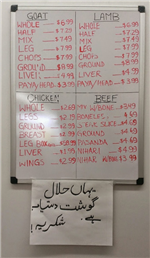 GOAT
WHOLE $6.99
HALF $7.29
MIX $7.49
LEG $7.99
CHOPS $7.99
GROUND $8.99
LIVER $4.99
PAYA/HEAD $3.99
LAMB
WHOLE $6.99
HALF $7.29
MIX $7.49
LEG $7.99
CHOPS $7.99
GROUND $8.99
LIVER $4.99
PAYA/HEAD $3.99
CHICKEN
WHOLE $2.69
LEGS $2.19
GROUND $3.99
BREAST $2.99
LEG BOX
LIVER $1.99
WINGS $2.99
BEEF
MIX W/BONE $3.99
BONELESS
GROUND $4.69
PASANDA $4.69
LIVER
NIHARI W/BONE $3.99
یہاں حلال
گوشت دستیاب
ہے۔
شکریہ!